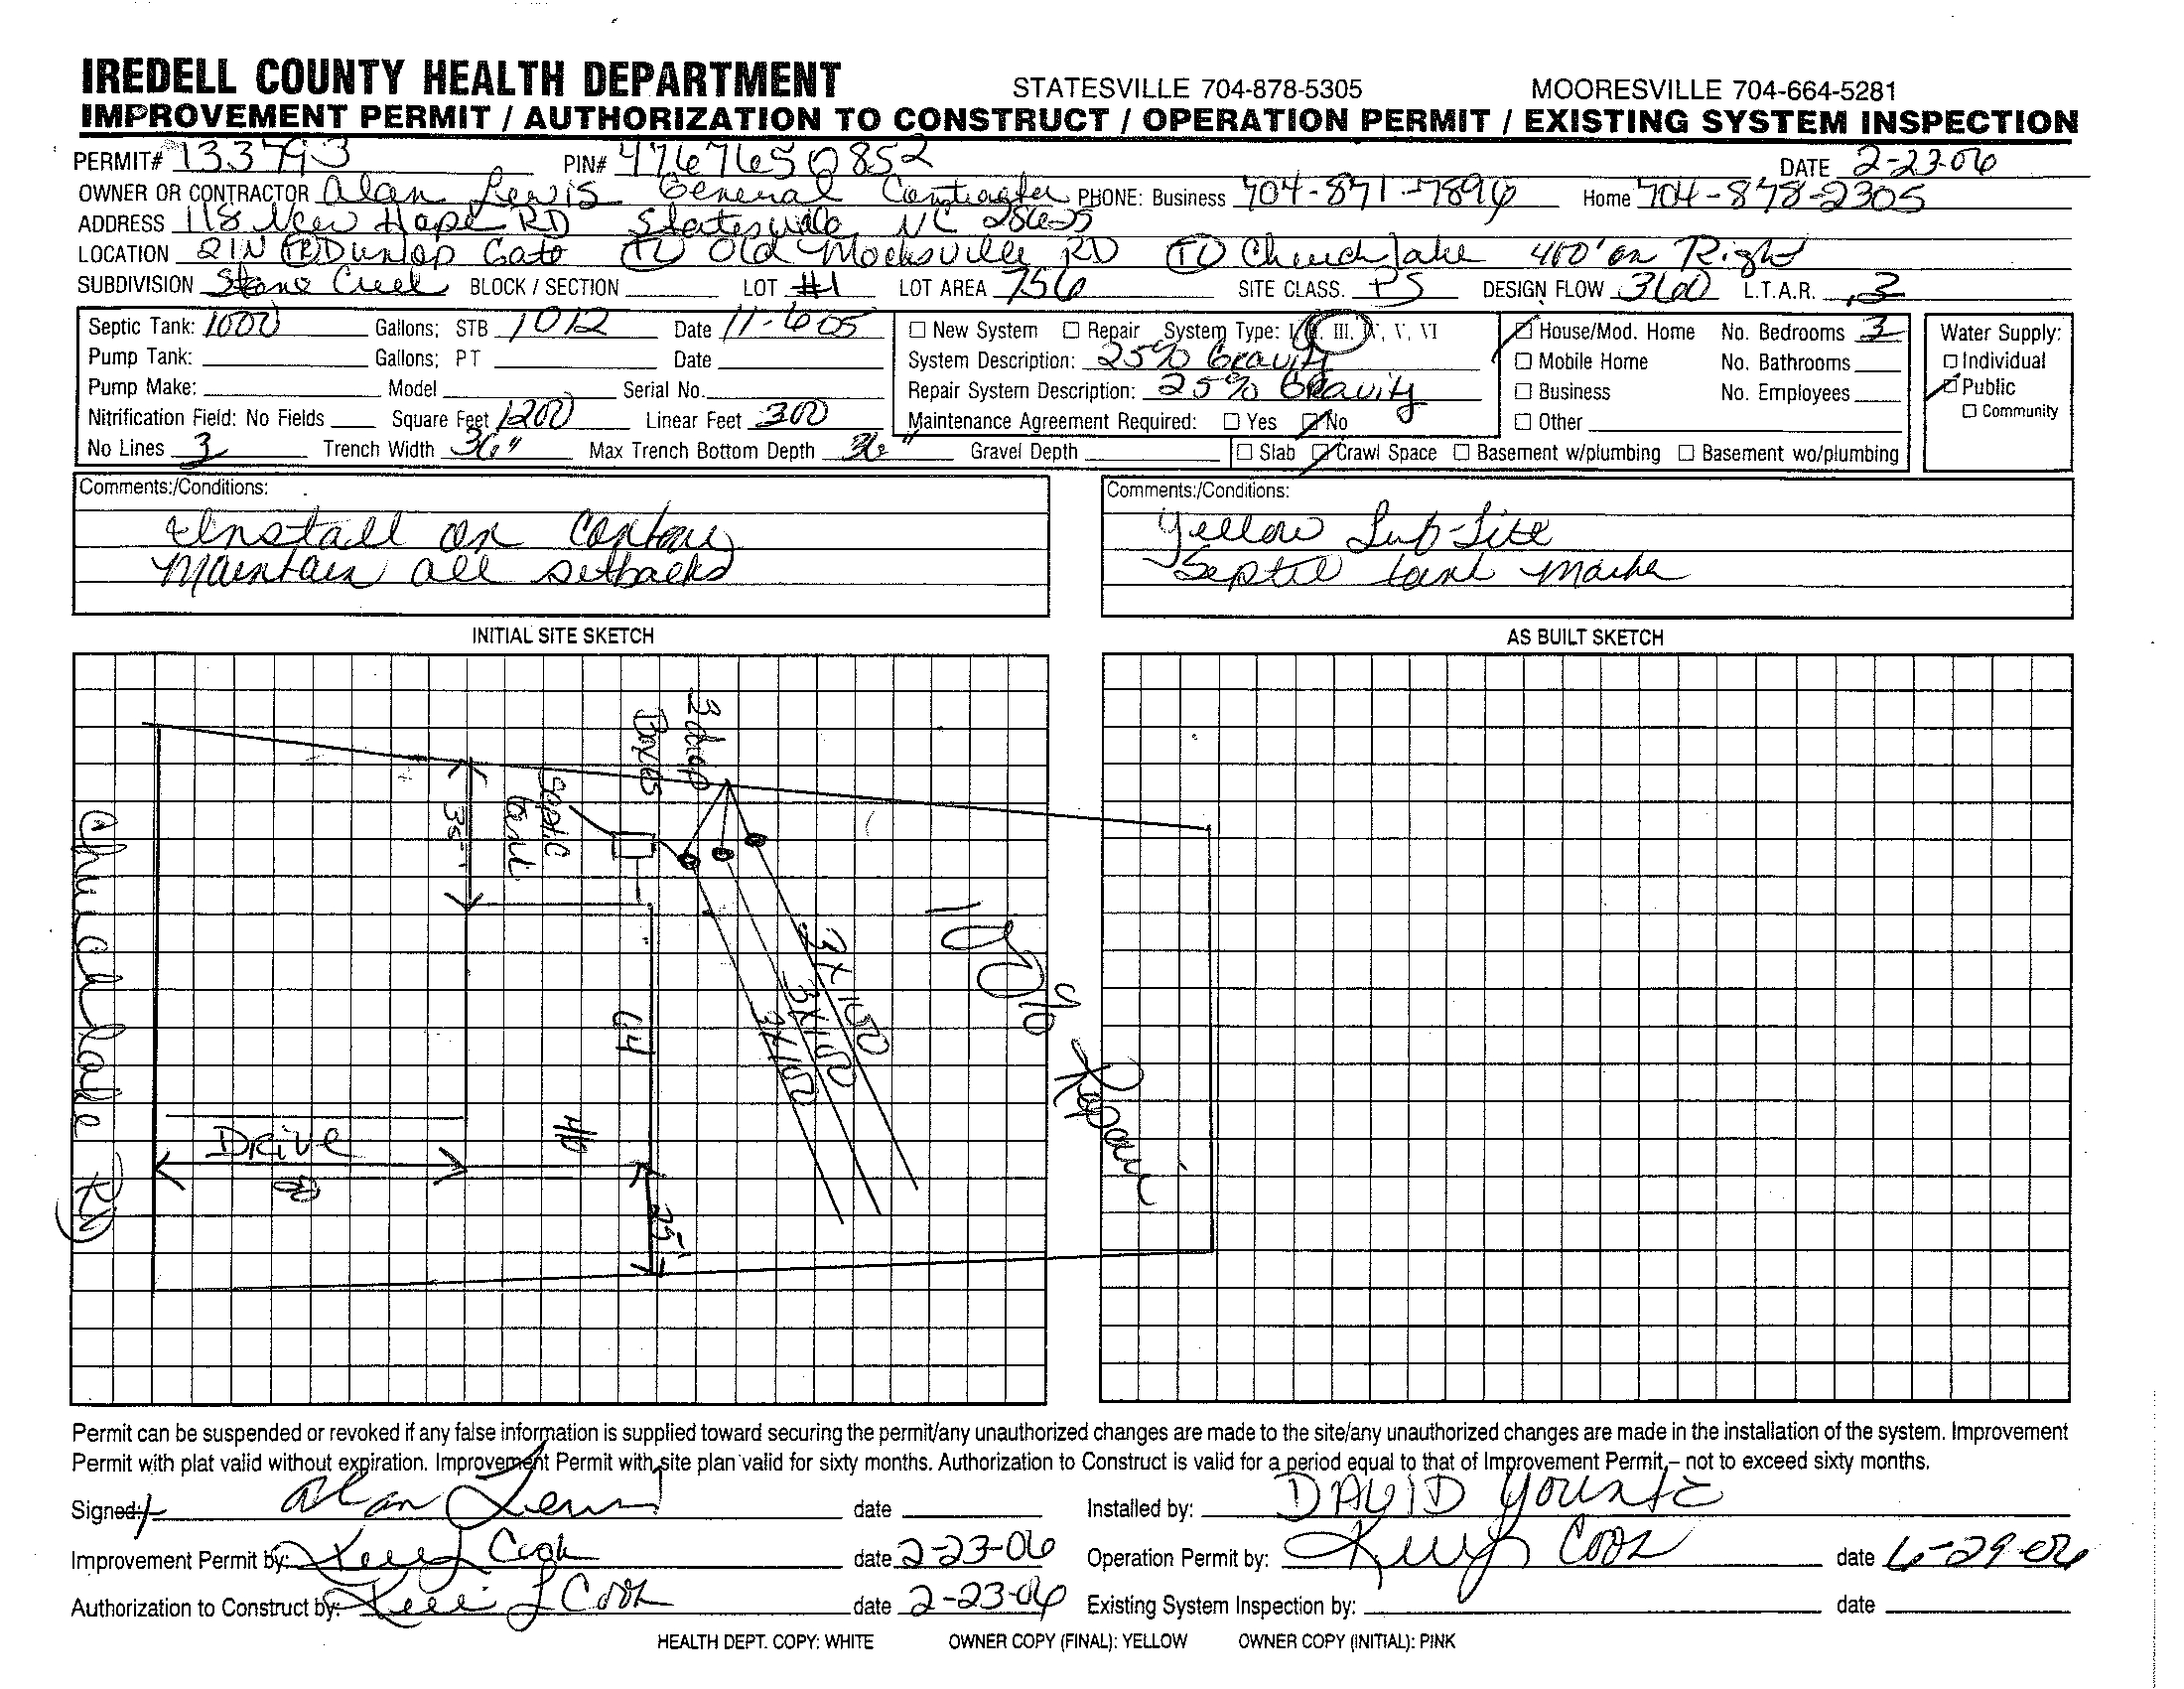 IREDELL COUNTY HEALTH DEPARTMENT STATESVILLE 704-878-5305 MOORESVILLE 704-664-5281
IMPROVEMENT PERMIT / AUTHORIZATION TO CONSTRUCT / OPERATION PERMIT / EXISTING SYSTEM INSPECTION
PERMIT# 133793 PIN# 4767650852 DATE 2-23-06
OWNER OR CONTRACTOR Alan Lewis General Contractor PHONE: Business 704-871-7896 Home 704-878-2305
ADDRESS 118 New Hope RD Statesville NC 28625
LOCATION 21N TR Dunlap Gate TL Old Mocksville RD TL Church Lake 400' on Right
SUBDIVISION Stone Creek BLOCK / SECTION LOT #1 LOT AREA .756 SITE CLASS. PS DESIGN FLOW 360 L.T.A.R. .3
Septic Tank: 1000 Gallons; STB 1012 Date 11-6-05 New System Repair System Type: I, II, III, IV, V, VI House/Mod. Home No. Bedrooms 3 Water Supply:
Pump Tank: Gallons; PT Date System Description: 25% Gravity Mobile Home No. Bathrooms Individual
Pump Make: Model Serial No. Repair System Description: 25% Gravity Business No. Employees Public
Nitrification Field: No Fields Square Feet 1200 Linear Feet 300 Maintenance Agreement Required: Yes No Other Community
No Lines 3 Trench Width 36" Max Trench Bottom Depth 36" Gravel Depth Slab Crawl Space Basement w/plumbing Basement wo/plumbing
Comments:/Conditions: Comments:/Conditions:
Install on Contour Yellow Sub-Site
Maintain all setbacks Septic tank marker
INITIAL SITE SKETCH AS BUILT SKETCH
3 drop
Boxes
Septic
tank
35'
Church Lake RD
3X100
3X100
3X100
100% Repair
64
40
Drive
25'
Permit can be suspended or revoked if any false information is supplied toward securing the permit/any unauthorized changes are made to the site/any unauthorized changes are made in the installation of the system. Improvement
Permit with plat valid without expiration. Improvement Permit with site plan valid for sixty months. Authorization to Construct is valid for a period equal to that of Improvement Permit,– not to exceed sixty months.
Signed: Alan Lewis date Installed by: DAVID YOUNTE
Improvement Permit by: Cook date 2-23-06 Operation Permit by: Cook date 6-29-06
Authorization to Construct by: L Cook date 2-23-06 Existing System Inspection by: date
HEALTH DEPT. COPY: WHITE OWNER COPY (FINAL): YELLOW OWNER COPY (INITIAL): PINK